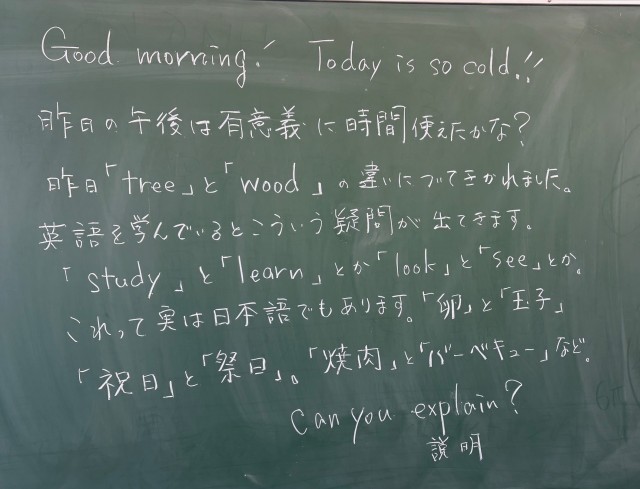 Good morning! Today is so cold!!
昨日の午後は有意義に時間使えたかな?
昨日「tree」と「wood」の違いについてきかれました。
英語を学んでいるとこういう疑問が出てきます。
「study」と「learn」とか「look」と「see」とか。
これって実は日本語でもあります。「卵」と「玉子」
「祝日」と「祭日」。「焼肉」と「バーベキュー」など。
Can you explain?
説明